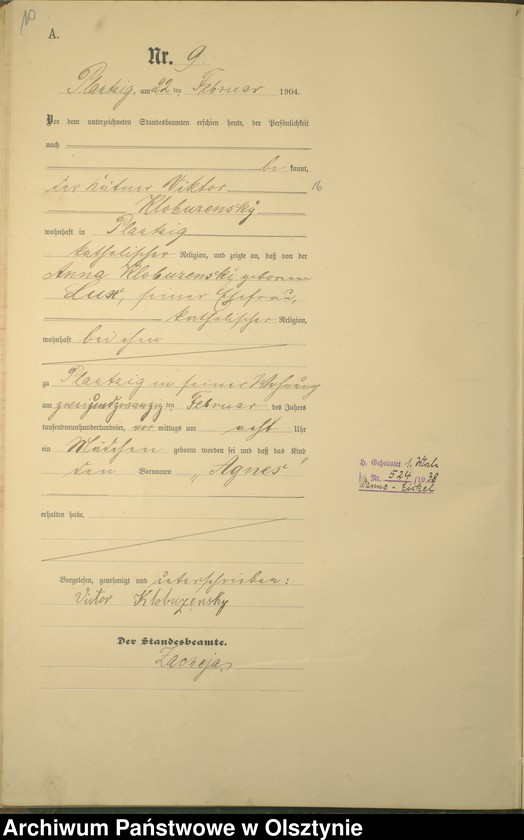 10
A.
Nr. 9.
Plautzig, am 22 ten Februar 1904.
Vor dem unterzeichneten Standesbeamten erschien heute, der Persönlichkeit
nach
be kannt,
der Kätner Viktor 16
Klobuzensky
wohnhaft in Plautzig
katholischer Religion, und zeigte an, daß von der
Anna Klobuzensky geborenen
Lux, seiner Ehefrau,
katholischer Religion,
wohnhaft bei ihm
zu Plautzig in seiner Wohnung
am zweiundzwanzig ten Februar des Jahres
tausendneunhundertundvier, vor mittags um acht Uhr
ein Mädchen geboren worden sei und daß das Kind
den Vornamen „Agnes"
erhalten habe.
H. Geheiratet 1.
Nr. 524/1938
Wanne-Eickel
Vorgelesen, genehmigt und unterschrieben:
Victor Klobuzensky
Der Standesbeamte.
Archiwum Państwowe w Olsztynie